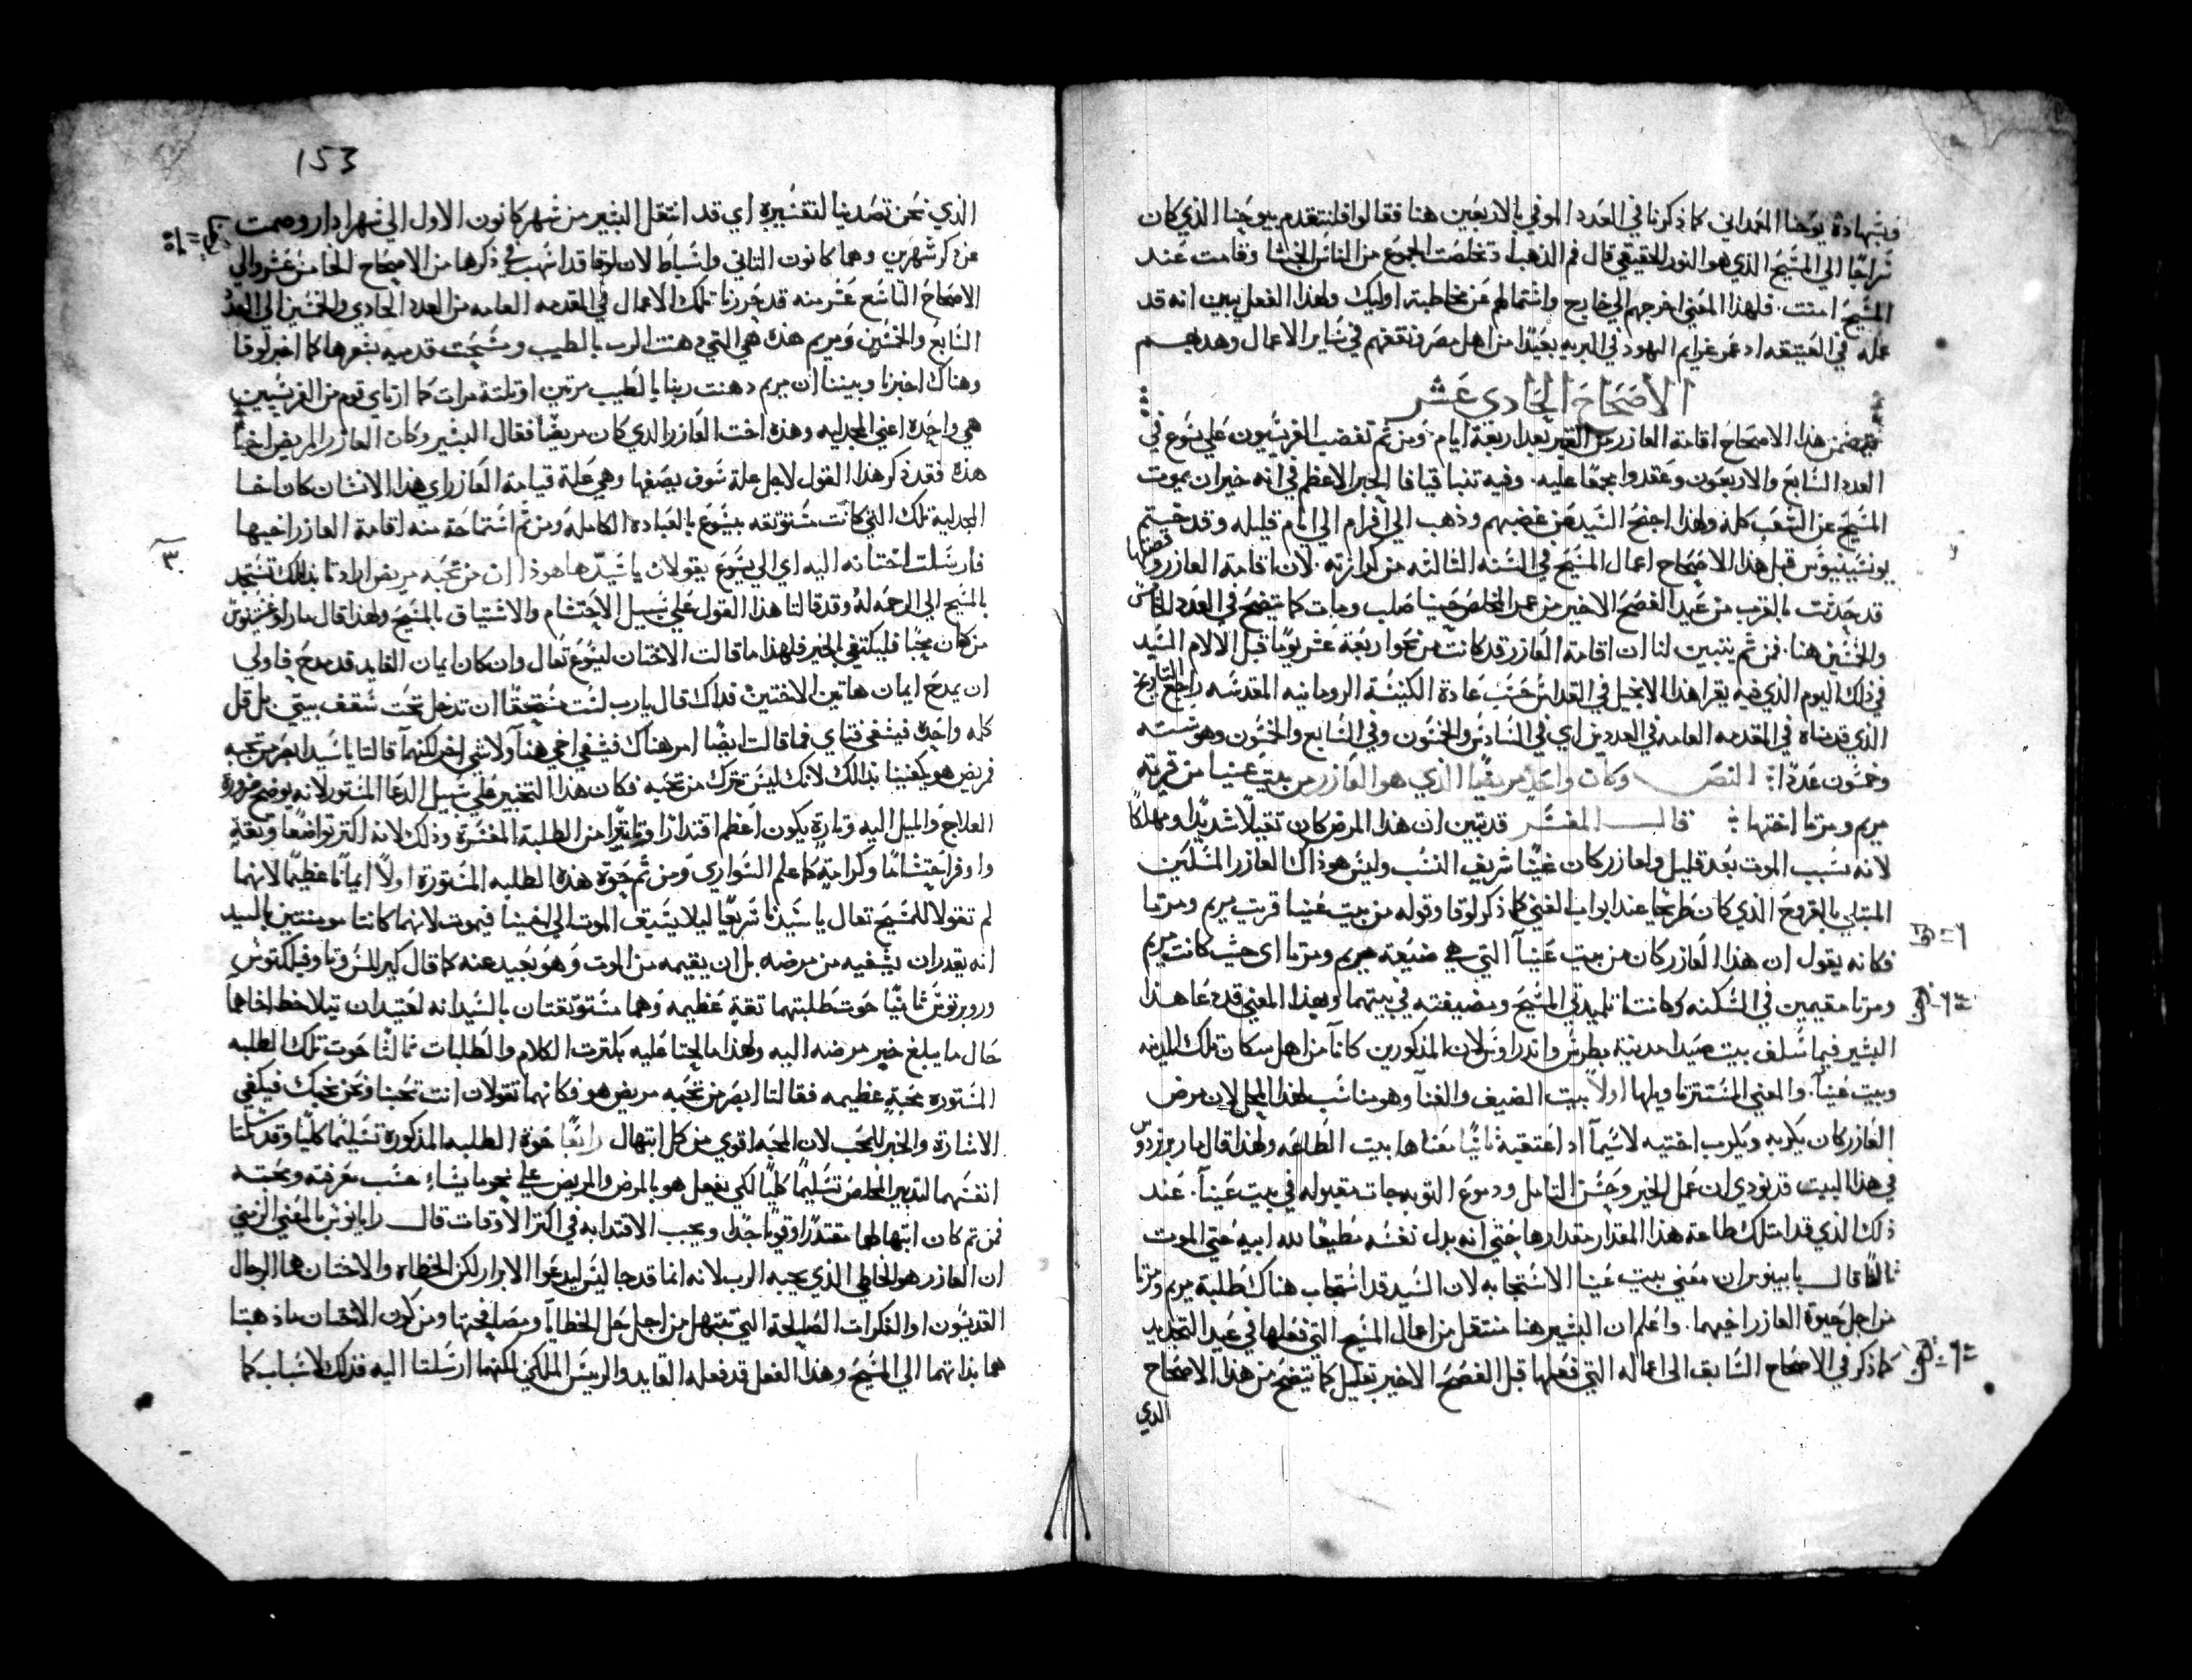 وبشهادة يوحنا المعمداني كما ذكرنا في العدد الموفي بالاربعين هنا فقالوا فلنتقدم بيوحنا الذي كان
سراجًا الي المسيح الذي هو النور الحقيقي قال فم الذهب اد تخلصت الجموع من الناس الخبثا وقامت عند
المسيح امنت. فلهذا المعني اخرجهم الي خارج واشتمالهم عن مخاطبة اوليك ولهذا الفعل يبين انه قد
عمله في العتيقه اد عمر غرايم اليهود في البريه بعيدًا من اهل مصر ونقفهم في ساير الاعمال وهدبهم
الاصحاح الحادي عشر
يتضمن هذا الاصحاح اقامة العازر من القبر بعد اربعة ايام ومن ثم تغضب الفريسيون علي يسوع في
العدد السابع والاربعون وعقدوا مجمعًا عليه. وفيه تنبا قيافا الحبر الاعظم في انه خير ان يموت
المسيح عن الشعب كله ولهذا اجنح السيد عن غضبهم وذهب الي افرام الي ايام قليله وقد ختم
يونسينيوس قبل هذا الاصحاح اعمال المسيح في السنه الثالثه من كرازته. لان اقامة العازر وقصتها
قد حدثت بالقرب من عيد الفصح الاخير من عمر المخلص حينما صلب ومات كما يتضح في العدد الخامس
والخمسين هنا. فمن ثم يتبين لنا ان اقامة العازر قد كانت من نحو اربعة عشر يومًا قبل الالام السيد
في ذلك اليوم الذي فيه يقرا هذا الانجيل في القداس حسب عادة الكنيسة الرومانيه المقدسه راجع التاريخ
الذي قدمناه في المقدمه العامه في العددين اي في السادس والخمسون وفي السابع والخمسون وهو ستة
وخمسون عددًا: النص وكان واحد مريضًا الذي هو العازر من بيت عنيا من قرية
مريم ومرتا اختها: قال المفسر قد يتبين ان هذا المرض كان ثقيلاً شديدًا ومهلكًا
لانه سبب الموت بعد قليل ولعازر كان غنيًا شريف النسب وليس هو ذاك العازر المسكين
المبتلي بالقروح الذي كان طريحًا عند ابواب الغني كما ذكر لوقا وقوله من بيت عنيا قريت مريم ومرتا
فكانه يقول ان هذا العازر كان من بيت عنيا التي هي ضيعة مريم ومرتا اي حيث كانت مريم
ومرتا مقيمين في السكنه وكانتا تلميدتي المسيح ومضيفته في بيتهما وبهذا المعني قد دعا هذا
البشير فيما سلف بيت صيدا مدينة بطرس واندراوس لان المذكورين كانا من اهل سكان تلك المدينه
وبيت عنيا. والمعني المستتر تاويلها اولاً بيت الضيف والغنا وهو مناسب لهذا المحل لان مرض
العازر كان يكربه ويكرب اختيه لاسيما اد اعتقيه ثانيًا معناها بيت الطاعه ولهذا قال مار برنردوس
في هذا البيت قد نودي ان عمل الخير وحسن التامل ودموع التوبه جات مقبوله في بيت عنيا. عند
ذلك الذي قد امتلك طاعة هذا المقدار مقدارها حتي انه بدل نفسه مطيعًا لله ابيه حتي الموت
ثالثًا قال بابينوس ان معني بيت عنيا الاستجابه لان السيد قد استجاب هناك طلبة مريم ومرتا
من اجل حيوة العازر اخيهما. واعلم ان البشير هنا منتقل من اعمال المسيح التي فعلها في عيد التجديد
كما ذكر في الاصحاح السابق الي اعماله التي فعلها قبل الفصح الاخير بقليل كما يتضح من هذا الاصحاح
الدي
153
الذي نحن تصدينا لتفسيره اي قد انتقل البشير من شهر كانون الاول الي شهر ادار وصمت
عن ذكر شهرين وهما كانون الثاني واشباط لان لوقا قد اسهب في ذكرها من الاصحاح الخامس عشر والي
الاصحاح التاسع عشر منه قد حررنا تلك الاعمال في المقدمه العامه من العدد الحادي والخمسين الي العدد
السابع والخمسين ومريم هذه هي التي دهنت الرب بالطيب ومسحت قدميه بشعرها كما اخبر لوقا
وهناك اخبرنا وبيننا ان مريم دهنت ربنا بالطيب مرتين او ثلثة مرات كما ارتاي قوم من الفريسيين
هي واحده اعني المجدليه وهذه اخت العازر الذي كان مريضًا فقال البشير وكان العازر المريض اخا
هذه فقد ذكر هذا القول لاجل علة سوف يصفها وهي علة قيامة العازر اي هذا الانسان كان اخا
المجدلية تلك التي كانت مستوثقه بيسوع بالعبادة الكامله ومن ثم استماحة منه اقامة العازر اخيها
٣
فارسلت اختانه اليه اي الي يسوع يقولان يا سيد ها هوذا ان من تحبه مريض ارادتا بذلك تستجد
بالمسيح الي الرحمه له وقد قالتا هذا القول علي سبيل الاحتشام والاشتياق بالمسيح ولهذا قال مار اوغسطينوس
من كان محبًا فليكتفي بالخبر فلهذا ما قالت الاختان ليسوع تعال وان كان ايمان القايد قد مدح فاولي
ان يمدح ايمان هاتين الاختين فداك قال يارب لست مستحقًا ان تدخل تحت سقف بيتي بل قل
كله واحدة فيشفي فتاي فما قالت ايضًا امر هناك فيشفي اخي هنا ولا شي اخر لكنهما قالتا يا سيد ابصر من تحبه
مريض هو يكفينا بذلك لانك ليس تترك من تحبه فكان هذا التخبير علي سبيل الدعا المستور لانه يوضح ضرورة
العلاج والميل اليه وتارة يكون اعظم اقتدارًا وتاثيرًا من الطلبة المفسرة وذلك لانه اكثر تواضعًا وثقة
واوفر احتشامًا وكرامة كما علم السواري ومن ثم حوت هذه الطلبه المستورة اولاً ايمانًا عظيمًا لانهما
لم تقولا للمسيح تعال يا سيدنا سريعًا ليلا يسبق الموت الي اخينا فيموت لانهما كانتا مومنتين بالسيد
انه يقدر ان يشفيه من مرضه بل ان يقيمه من الموت وهو بعيد عنه كما قال كيرللس وتاوفيلكتوس
وروبرتوس ثانيًا حوت طلبتهما ثقة عظيمه وهما مستوثقتان بالسيد انه لعتيد ان يلاحظ اخاهما
حال ما يبلغ خبر مرضه اليه ولهذا ما لجتا عليه بكثرت الكلام والطلبات ثالثًا حوت تلك الطلبه
المستوره محبة عظيمه فقالتا ابصر من تحبه مريض هو فكانهما تقولان انت تحبنا ونحن نحبك فيكفي
الاشارة والخبر للمحب لان المحبه اقوي من كل ابتهال رابعًا حوت الطلبه المذكورة تسليمًا كليًا وقد سلمتا
انفسهما لتدبير المخلص تسليمًا كليًا لكي يفعل هو بالمرض والمريض علي نحو ما يشاء حسب معرفته ومحبته
فمن ثم كان ابتهالهما مقتدرًا وقويًا جدًا ويجب الاقتدا به في اكثر الاوقات قال رابانوس بالمعني الرمزي
ان العازر هو الخاطي الذي يحبه الرب لانه انما قد جا ليس ليدعوا الابرار لكن الخطاه والاختان هما الرجال
القديسون او الفكرات الصالحة التي تبتهل من اجل حل الخطايا ومصالحتها ومن كون الاختان ما ذهبتا
هما بذاتهما الي المسيح وهذا الفعل قد فعله القايد والرييس الملكي لكنهما ارسلتا اليه فذلك لاسباب كما